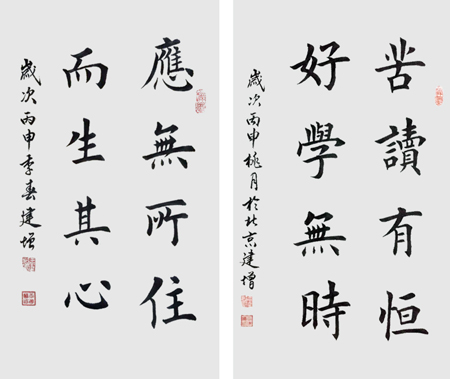 應無所住
而生其心
歲次丙申季春建增
苦讀有恒
好學無時
歲次丙申桃月於北京建增